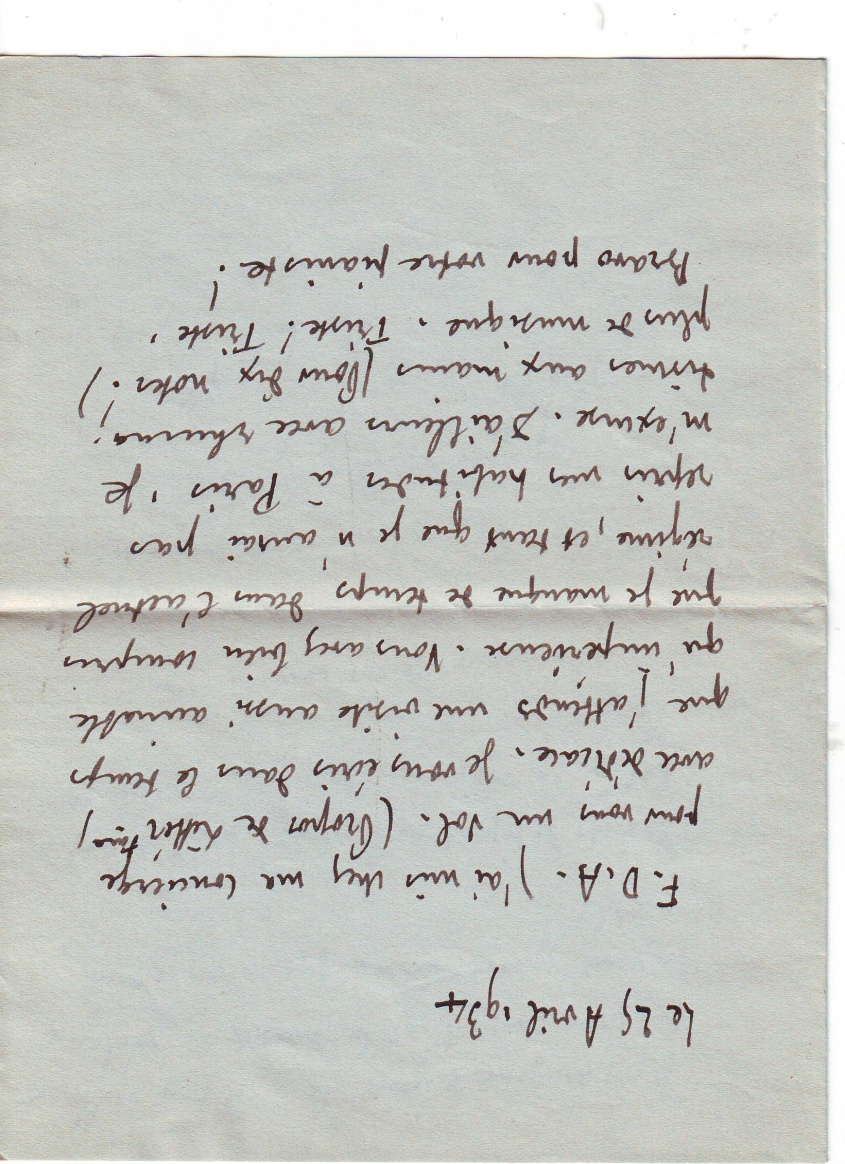 Le 25 Avril 1934
F.D.A. J'ai mis chez ma concierge
pour vous un vol. (Propos de Littérature)
avec dédicace. Je vous écris dans le temps
que j'attends une visite aussi aimable
qu'impérieuse. Vous avez bien compris
que je manque de temps dans l'actuel
régime, et tant que je n'aurai pas
repris mes habitudes à Paris. Je
m'excuse. D'ailleurs avec rhuma-
tismes aux mains (Pour dix notes!)
plus de musique. Triste! Triste!
Bravo pour votre pianiste!